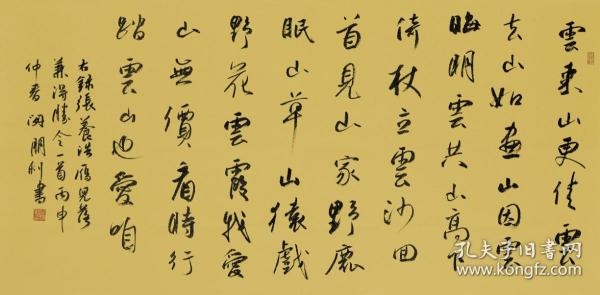 雲來山更佳雲
去山如畫山因雲
晦明雲共山高下
倚杖立雲沙回
首見山家野鹿
眠山草山猿戲
野花雲霞我愛
山無價看時行
踏雲山也愛咱
右錄張養浩雁兒落
兼得勝令一首丙申
仲春 朋利書
孔夫子旧书网
www.kongfz.com